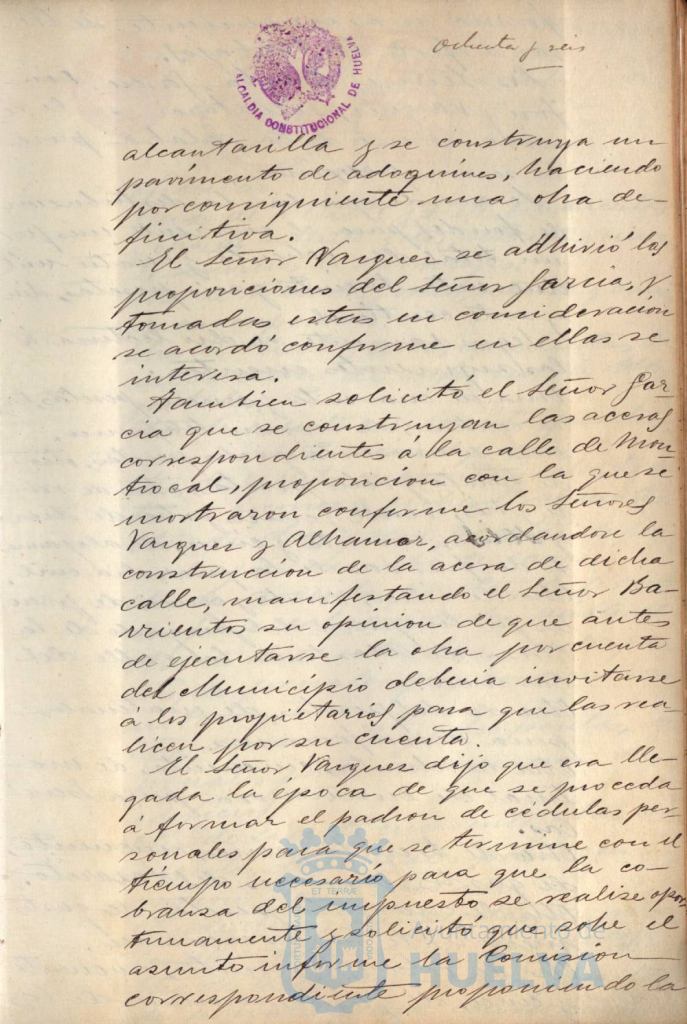 Ochenta y seis
ALCALDIA CONSTITUCIONAL DE HUELVA
alcantarilla y se construya un
pavimento de adoquines, haciendo
por consiguiente una obra de-
finitiva.
El Señor Vazquez se adhirió las
proposiciones del Señor Garcia, y
tomadas estas en consideración
se acordó conforme en ellas se
interesa.
Tambien solicitó el Señor Gar-
cia que se construyan las aceras
correspondientes á la calle de Mon-
trocal, proposicion con la que se
mostraron conforme los Señores
Vazquez y Alhamar, acordandose la
construccion de la acera de dicha
calle, manifestando el Señor Ba-
rrientos su opinion de que antes
de ejecutarse la obra por cuenta
del Municipio deberia invitarse
á los propietarios para que las rea-
licen por su cuenta.
El Señor Vazquez dijo que era lle-
gada la época de que se proceda
á formar el padron de cédulas per-
sonales para que se termine con el
tiempo necesario para que la co-
branza del impuesto se realize opor
tunamente y solicitó que sobre el
asunto informe la Comisión
correspondiente proponiendo la
Ayuntamiento de
HUELVA